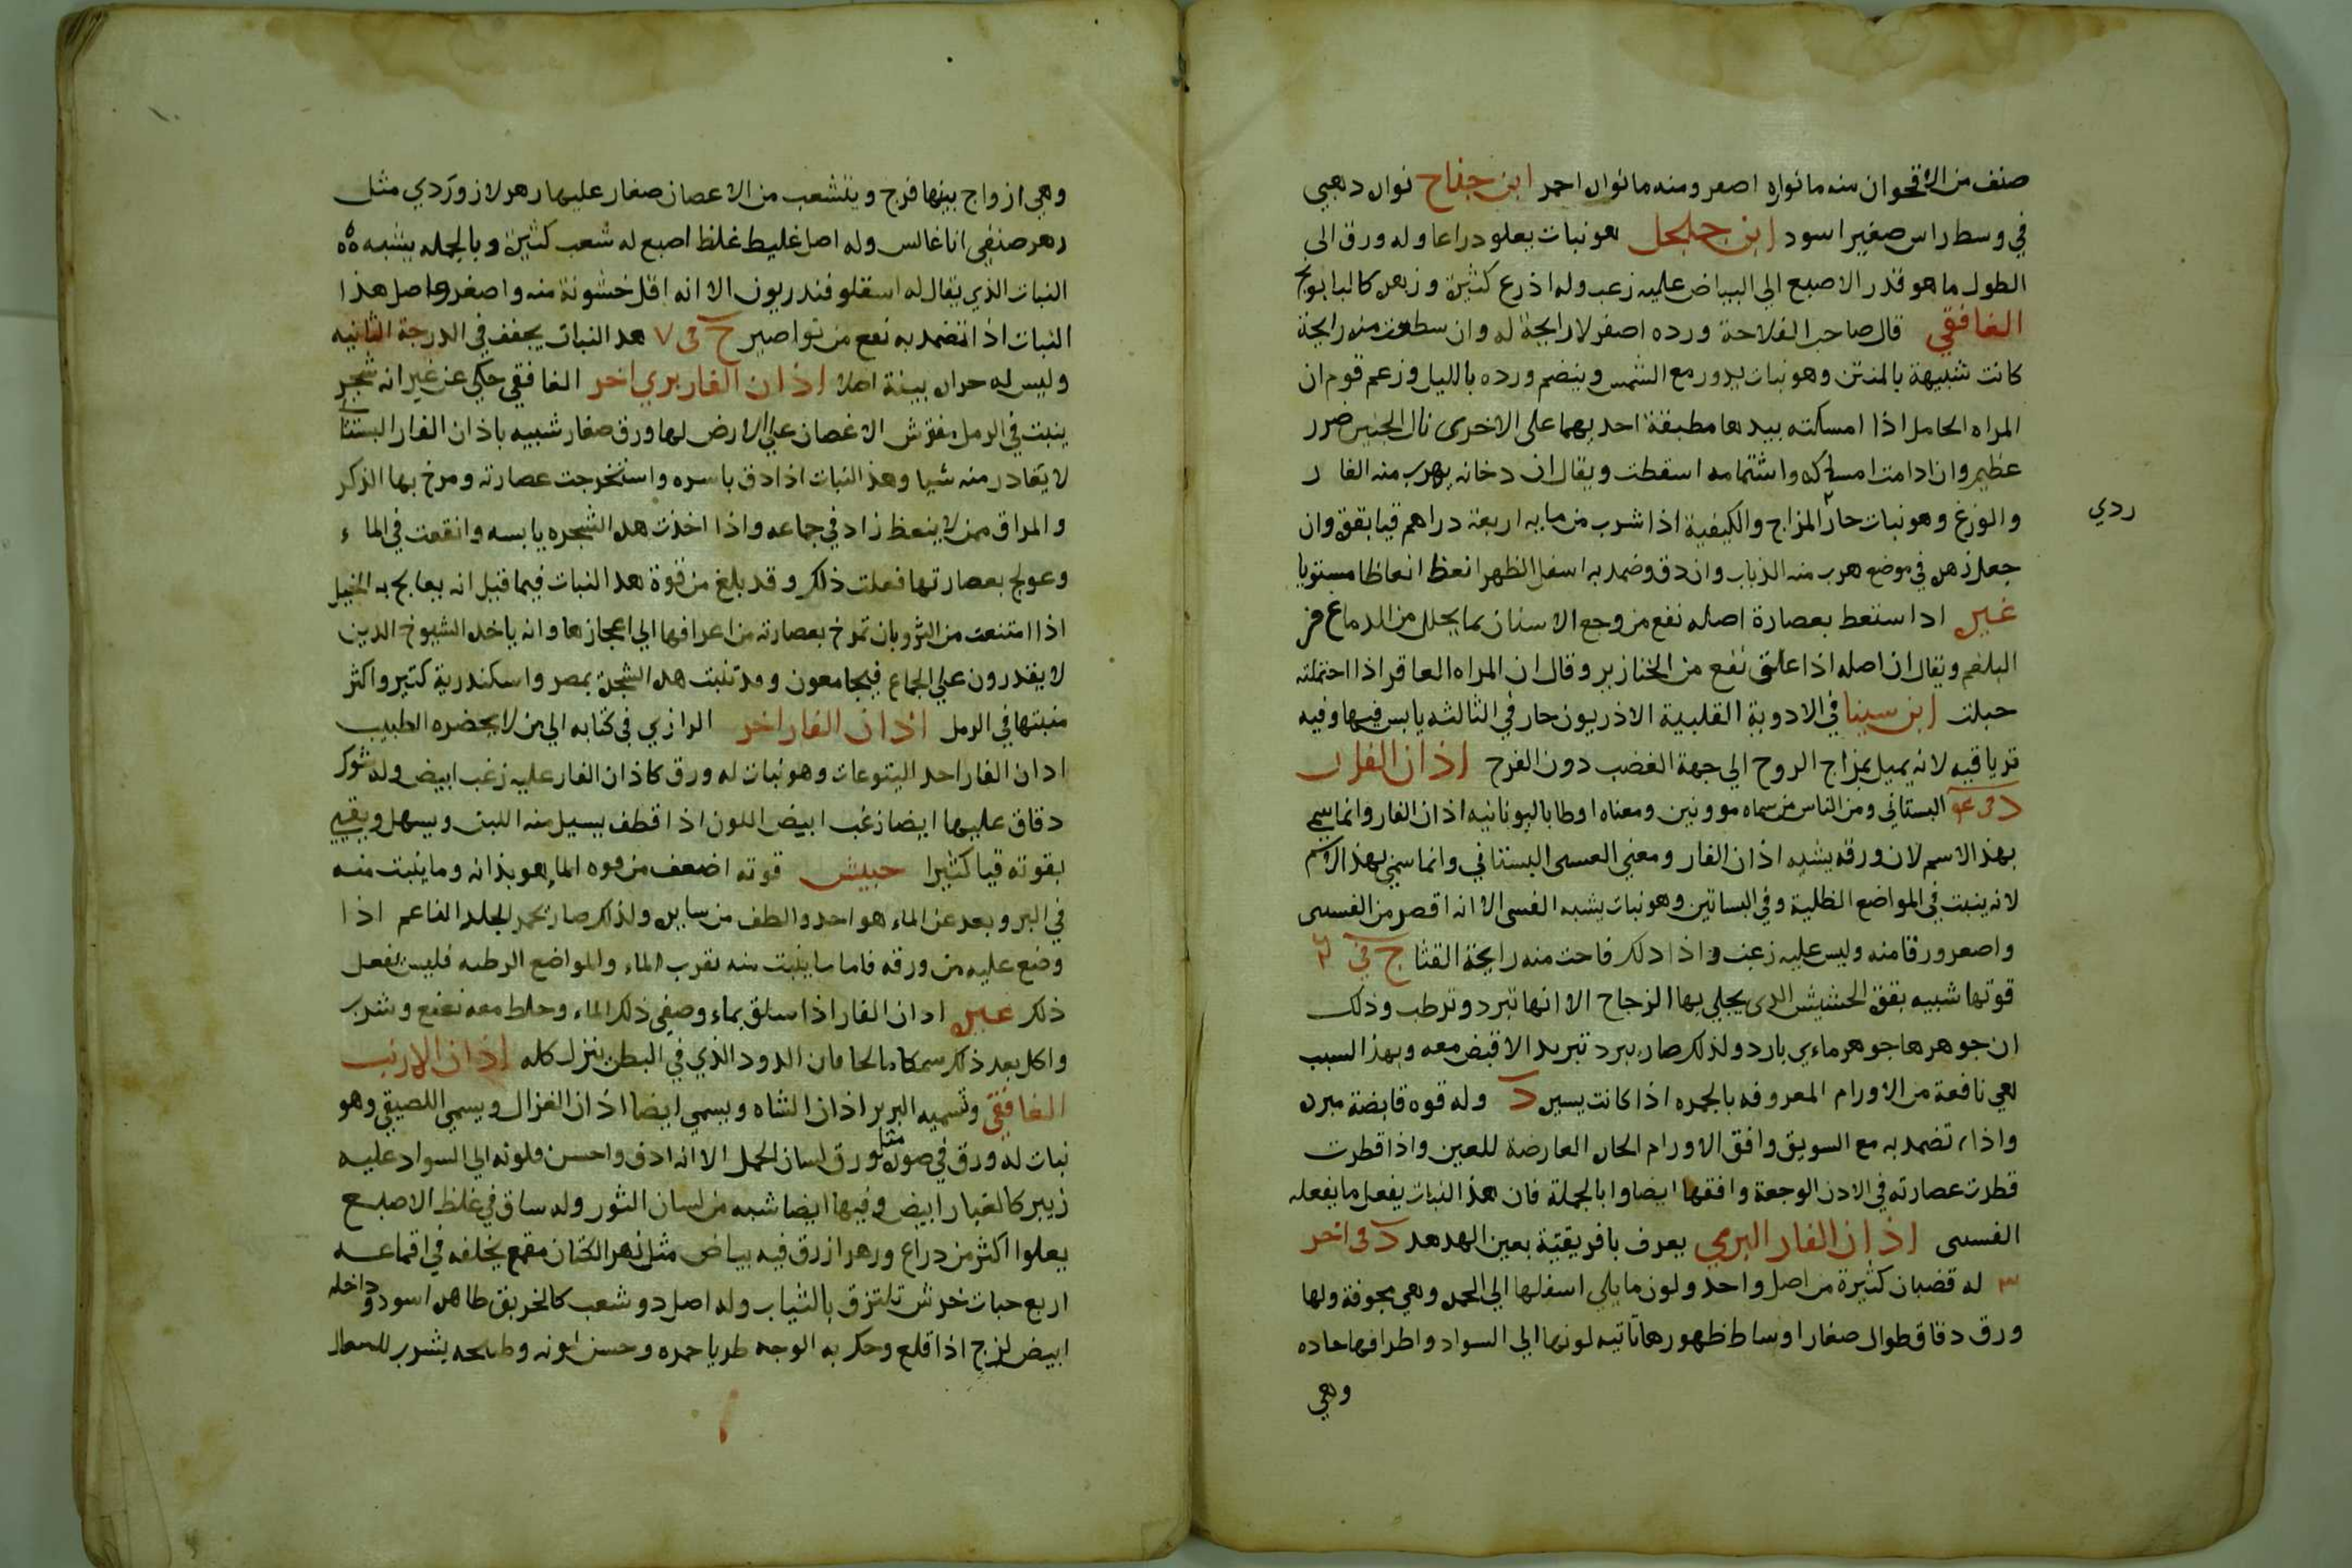 صنف من الاقحوان منه ما نواره اصفر ومنه ما نواره احمر ابن جناح نواره دهبي
في وسطه راس صغير اسود ابن جلجل هو نبات يعلو دراعا وله ورق الى
الطول ما هو قدر الاصبع الى البياض عليه زغب وله اذرع كثيرة وزهره كالبابونج
الغافقي قال صاحب الفلاحة ورده اصفر لا رايحة له وان سطعت منه رايحة
كانت شبيهة بالمنتن وهو نبات يدور مع الشمس وينضم ورده بالليل وزعم قوم ان
المراه الحامل اذا امسكته بيدها مطبقة احديهما على الاخرى نال الجنين ضرر
عظيم وان ادامت امساكه واشتمامه اسقطت ويقال ان دخانه يهرب منه الفار
والوزغ وهو نبات حار المزاج والكيفية اذا شرب من مايه اربعة دراهم قيا بقوة وان
ردي
جعل زهره في موضع هرب منه الذباب وان دق وضمد به اسفل الظهر انعظ انعاظا مستويا
غيره ادا ستعط بعصارة اصله نفع من وجع الاسنان بما يحلل من الدماغ من
البلغم ويقال ان اصله اذا علق نفع من الخنازير وقال ان المراه العاقر اذا احتملته
حبلت ابن سينا في الادوية القلبية الاذريون حار في الثالثه يابس فيها وفيه
ترياقيه لانه يميل بمزاج الروح الي جهة الغضب دون الفرح اذان الفار
البستاني ومن الناس من سماه مووتين ومعناه اوطا باليونانيه اذان الفار وانما سمي
بهذ الاسم لان ورقه يشبه اذان الفار ومعني العسى البستاني وانما سمي بهذ الاسم
لانه ينبت في المواضع الظلية وفي البساتين وهو نبات يشبه الفسى الا انه اقصر من الفسى
واصغر ورقا منه وليس عليه زغب واذا دلك فاحت منه رايحة القثا ج في ٦
قوتها شبيه بقوة الحشيش الدى يجلي بها الزجاج الا انها تبرد وترطب وذلك
ان جوهرها جوهر ماءي بارد ولذلك صار يبرد تبريد الا قبض معه وبهذ السبب
هي نافعة من الاورام المعروفه بالجمره اذا كانت يسيره د وله قوه قابضة مبرده
واذا تضمد به مع السويق وافق الاورام الحاره العارضة للعين واذا قطرت
قطرت عصارته في الادن الوجعة وافقها ايضا وا بالجملة فان هذ النبات يفعل ما يفعله
الفسى اذان الفار البري يعرف بافريقية بعين الهدهد د في اخر
٣ له قضبان كثيرة من اصل واحد ولون ما يلي اسفلها الي الحمره وهي مجوفة ولها
ورق دقاق طوال صغار اوساط ظهورها ناتيه لونها الي السواد واطرافها حاده
وهي
وهي ازواج بينها فرج ويتشعب من الاعصان صغار عليها زهر لازوردي مثل
زهر صنفي اناغالس وله اصل غليظ غلظ اصبع له شعب كثيرة وبالجمله يشبه ه
النبات الذي يقال له اسقلوفندريون الا انه اقل خشونة منه واصغر واصل هذا
النبات اذا تضمد به نفع من نواصير ج في ٧ هد النبات يجفف في الدرجة الثانيه
وليس له حراره بينة اصلا اذان الفار بري اخر الغافقي حكي عن غيره انه شجر
ينبت في الرمل مفترش الاغصان علي الارض لها ورق صغار شبيه باذان الفار البستاني
لا يغادر منه شيا وهذ النبات اذا دق باسره واستخرجت عصارته ومرخ بها الذكر
والمراق ممن لا ينعظ زاد في جماعه واذا اخذت هذه الشجره يابسه وانقعت في الماء
وعولج بعصارتها فعلت ذلك وقد بلغ من قوة هد النبات فيما قيل انه يعالج به الخيل
اذا امتنعت من النزو بان تمرخ بعصارته من اعرافها الي اعجازها وانه ياخده الشيوخ الدين
لا يقدرون علي الجماع فيجامعون وقد تنبت هد الشجرة بمصر واسكندرية كتير واكثر
منبتها في الرمل اذان الفار اخر الرازي في كتابه الي من لا يحضره الطبيب
ادان الفار احد اليتوعات وهو نبات له ورق كاذان الفار عليه زغب ابيض وله شوك
دقاق عليها ايضا زغب ابيض اللون اذا قطف يسيل منه اللبن ويسهل ويقيي
بقوته قيا كثيرا حبيش قوته اضعف من قوه الماهوبذانه وما ينبت منه
في البر وبعد عن الماء هو احد والطف من سايره ولذلك صار يحمر الجلد الناعم اذا
وضع عليه من ورقه فاما ما ينبت منه بقرب الماء والمواضع الرطبه فليس يفعل
ذلك غيره ادان الفار اذا سلق بماء وصفي ذلك الماء وخلط معه نعنع وشرب
واكل بعد ذلك سمكا مالحا فان الدود الذي في البطن ينزل كله اذان الارنب
الغافقي وتسميه البربر اذان الشاه ويسمي ايضا اذان الغزال ويسمي اللصيقي وهو
نبات له ورق في صورة مثل ورق لسان الحمل الا انه ادق واحسن ولونه الي السواد عليه
زيبر كالغبار ابيض وفيها ايضا شبه من لسان الثور وله ساق في غلظ الاصبع
يعلوا اكثر من دراع وزهر ازرق فيه بياض مثل زهر الكتان مقمع يخلفه في اقماعه
اربع حبات خرش تلتزق بالثياب وله اصل دو شعب كالخربق ظاهره اسود وداخله
ابيض لزج اذا قلع وحك به الوجه طريا حمره وحسن لونه وطبيخه يشرب للسعال